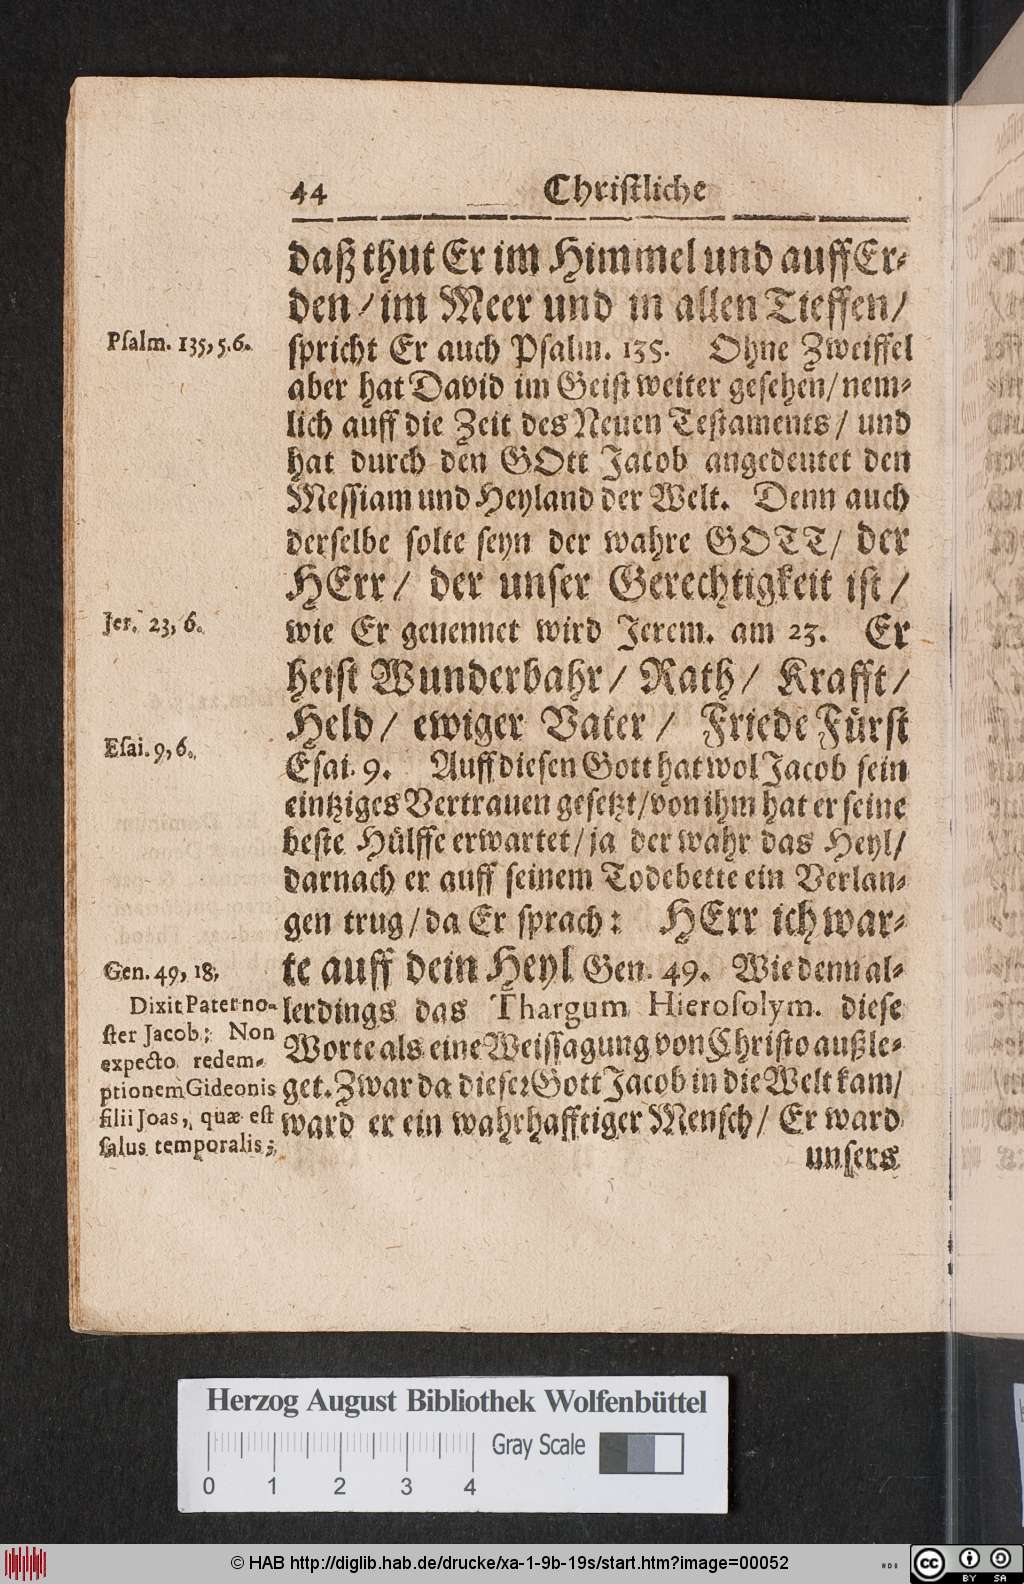 44 Christliche
daß thut Er im Himmel und auff Er-
den / im Meer und in allen Tieffen /
Psalm. 135, 5. 6.
spricht Er auch Psalm. 135. Ohne Zweiffel
aber hat David im Geist weiter gesehen / nem-
lich auff die Zeit des Neuen Testaments / und
hat durch den GOtt Jacob angedeutet den
Messiam und Heyland der Welt. Denn auch
derselbe solte seyn der wahre GOTT / der
HErr / der unser Gerechtigkeit ist /
Jer. 23, 6.
wie Er genennet wird Jerem. am 23. Er
heist Wunderbahr / Rath / Krafft /
Held / ewiger Vater / Friede Fürst
Esai. 9, 6.
Esai. 9. Auff diesen Gott hat wol Jacob sein
eintziges Vertrauen gesetzt / von ihm hat er seine
beste Hülffe erwartet / ja der wahr das Heyl /
darnach er auff seinem Todebette ein Verlan-
gen trug / da Er sprach: HErr ich war-
te auff dein Heyl Gen. 49. Wie denn al-
lerdings das Thargum Hierosolym. diese
Worte als eine Weissagung von Christo außle-
get. Zwar da dieser Gott Jacob in die Welt kam /
ward er ein wahrhafftiger Mensch / Er ward
unsers
Gen. 49, 18.
Dixit Pater no-
ster Jacob: Non
expecto redem-
ptionem Gideonis
filii Joas, quæ est
salus temporalis;
Herzog August Bibliothek Wolfenbüttel
Gray Scale
0 1 2 3 4
© HAB http://diglib.hab.de/drucke/xa-1-9b-19s/start.htm?image=00052
cc BY SA